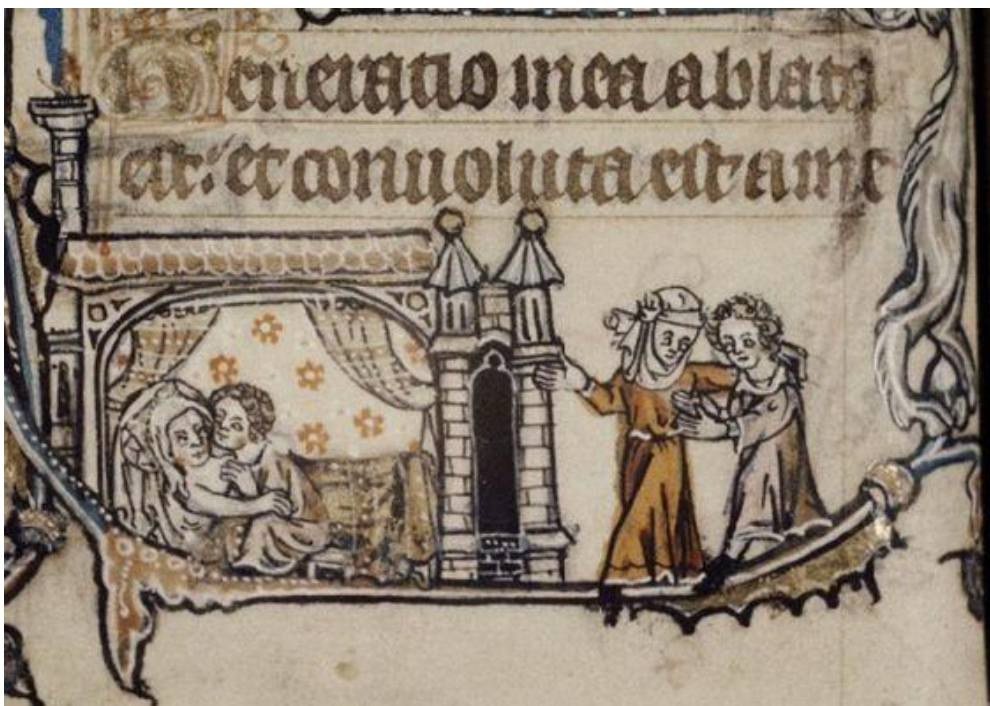 Generatio mea ablata
est: et conuoluta est a me